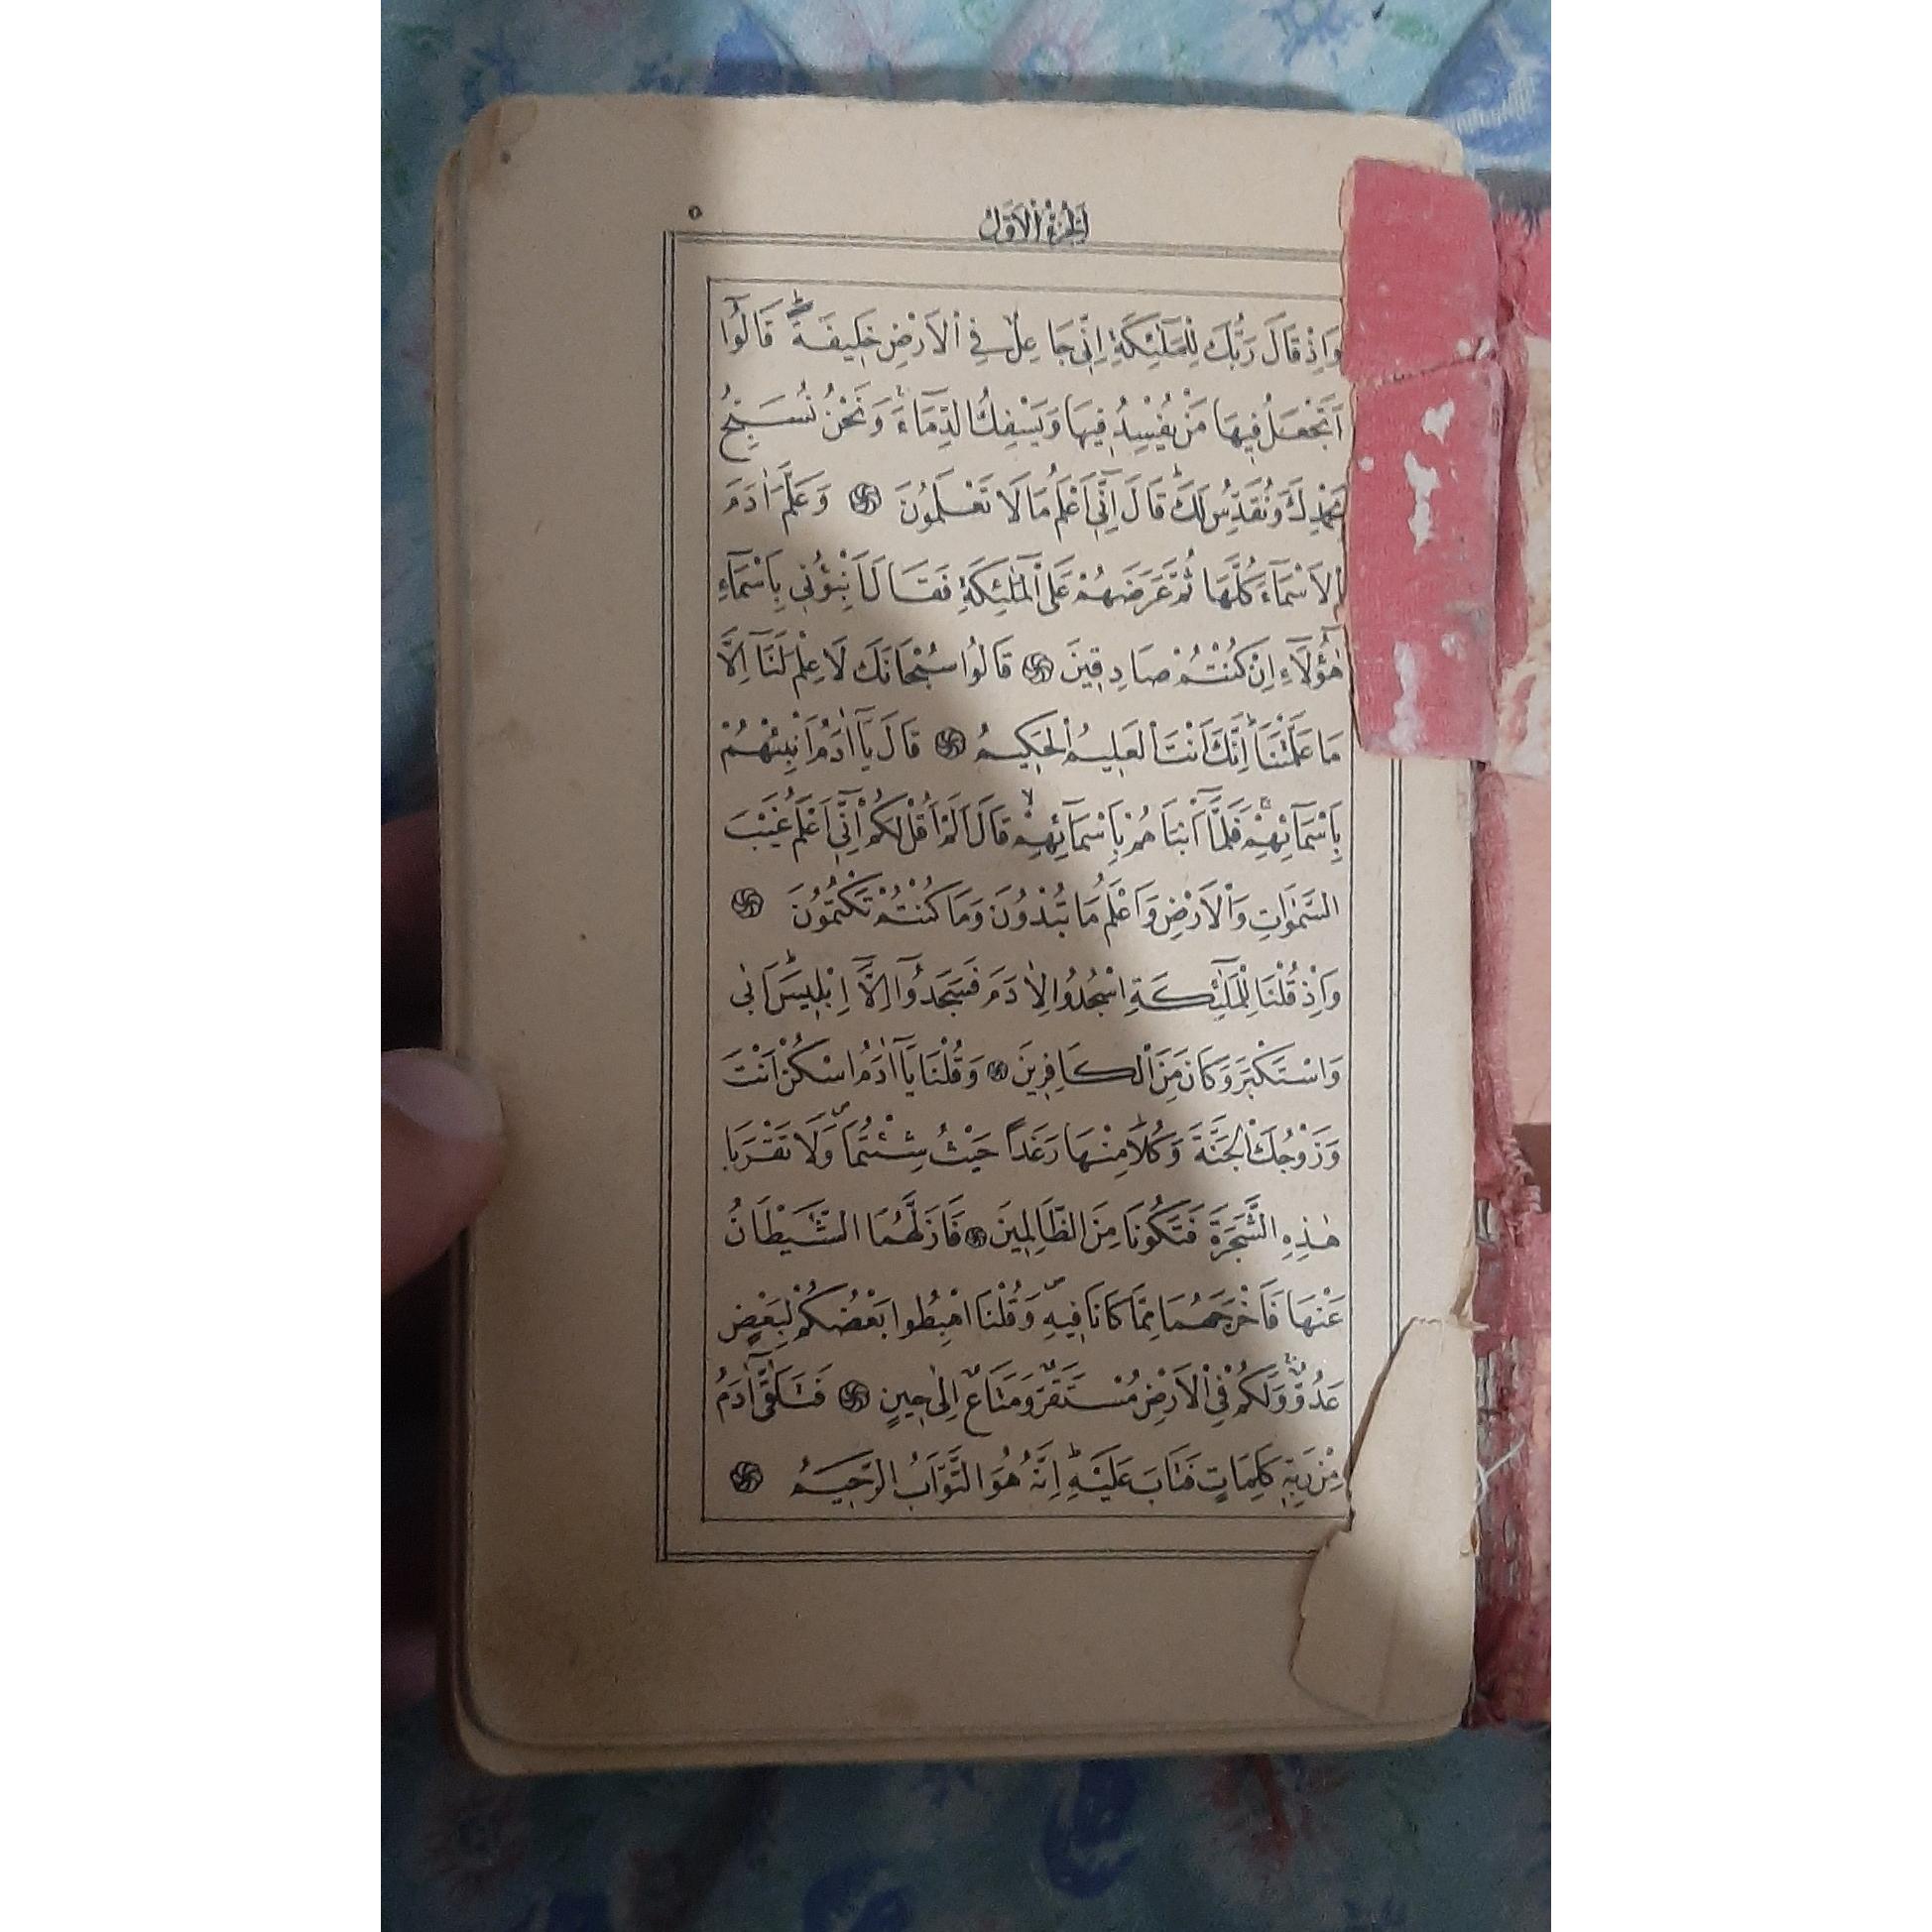 اَلْجُزْءُ الْاَوَّلُ
٥
وَاِذْ قَالَ رَبُّكَ لِلْمَلٰٓئِكَةِ اِنّٖى جَاعِلٌ فِى الْاَرْضِ خَلٖيفَةًؕ قَالُٓوا
اَتَجْعَلُ فٖيهَا مَنْ يُفْسِدُ فٖيهَا وَيَسْفِكُ الدِّمَٓاءَۚ وَنَحْنُ نُسَبِّحُ
بِحَمْدِكَ وَنُقَدِّسُ لَكَؕ قَالَ اِنّٖٓى اَعْلَمُ مَا لَا تَعْلَمُونَ ۝ وَعَلَّمَ اٰدَمَ
الْاَسْمَٓاءَ كُلَّهَا ثُمَّ عَرَضَهُمْ عَلَى الْمَلٰٓئِكَةِ فَقَالَ اَنْبِؤُنٖى بِاَسْمَٓاءِ
هٰٓؤُ۬لَٓاءِ اِنْ كُنْتُمْ صَادِقٖينَ ۝ قَالُوا سُبْحَانَكَ لَا عِلْمَ لَنَٓا اِلَّا
مَا عَلَّمْتَنَاؕ اِنَّكَ اَنْتَ الْعَلٖيمُ الْحَكٖيمُ ۝ قَالَ يَٓا اٰدَمُ اَنْبِئْهُمْ
بِاَسْمَٓائِهِمْۚ فَلَمَّٓا اَنْبَاَهُمْ بِاَسْمَٓائِهِمْۙ قَالَ اَلَمْ اَقُلْ لَكُمْ اِنّٖٓى اَعْلَمُ غَيْبَ
السَّمٰوَاتِ وَالْاَرْضِ وَاَعْلَمُ مَا تُبْدُونَ وَمَا كُنْتُمْ تَكْتُمُونَ ۝
وَاِذْ قُلْنَا لِلْمَلٰٓئِكَةِ اسْجُدُوا لِاٰدَمَ فَسَجَدُٓوا اِلَّٓا اِبْلٖيسَؕ اَبٰى
وَاسْتَكْبَرَ وَكَانَ مِنَ الْكَافِرٖينَ ۝ وَقُلْنَا يَٓا اٰدَمُ اسْكُنْ اَنْتَ
وَزَوْجُكَ الْجَنَّةَ وَكُلَا مِنْهَا رَغَدًا حَيْثُ شِئْتُمَاࣕ وَلَا تَقْرَبَا
هٰذِهِ الشَّجَرَةَ فَتَكُونَا مِنَ الظَّالِمٖينَ ۝ فَاَزَلَّهُمَا الشَّيْطَانُ
عَنْهَا فَاَخْرَجَهُمَا مِمَّا كَانَا فٖيهِࣕ وَقُلْنَا اهْبِطُوا بَعْضُكُمْ لِبَعْضٍ
عَدُوٌّۚ وَلَكُمْ فِى الْاَرْضِ مُسْتَقَرٌّ وَمَتَاعٌ اِلٰى حٖينٍ ۝ فَتَلَقّٰٓى اٰدَمُ
مِنْ رَبِّهٖ كَلِمَاتٍ فَتَابَ عَلَيْهِؕ اِنَّهُ هُوَ التَّوَّابُ الرَّحٖيمُ ۝